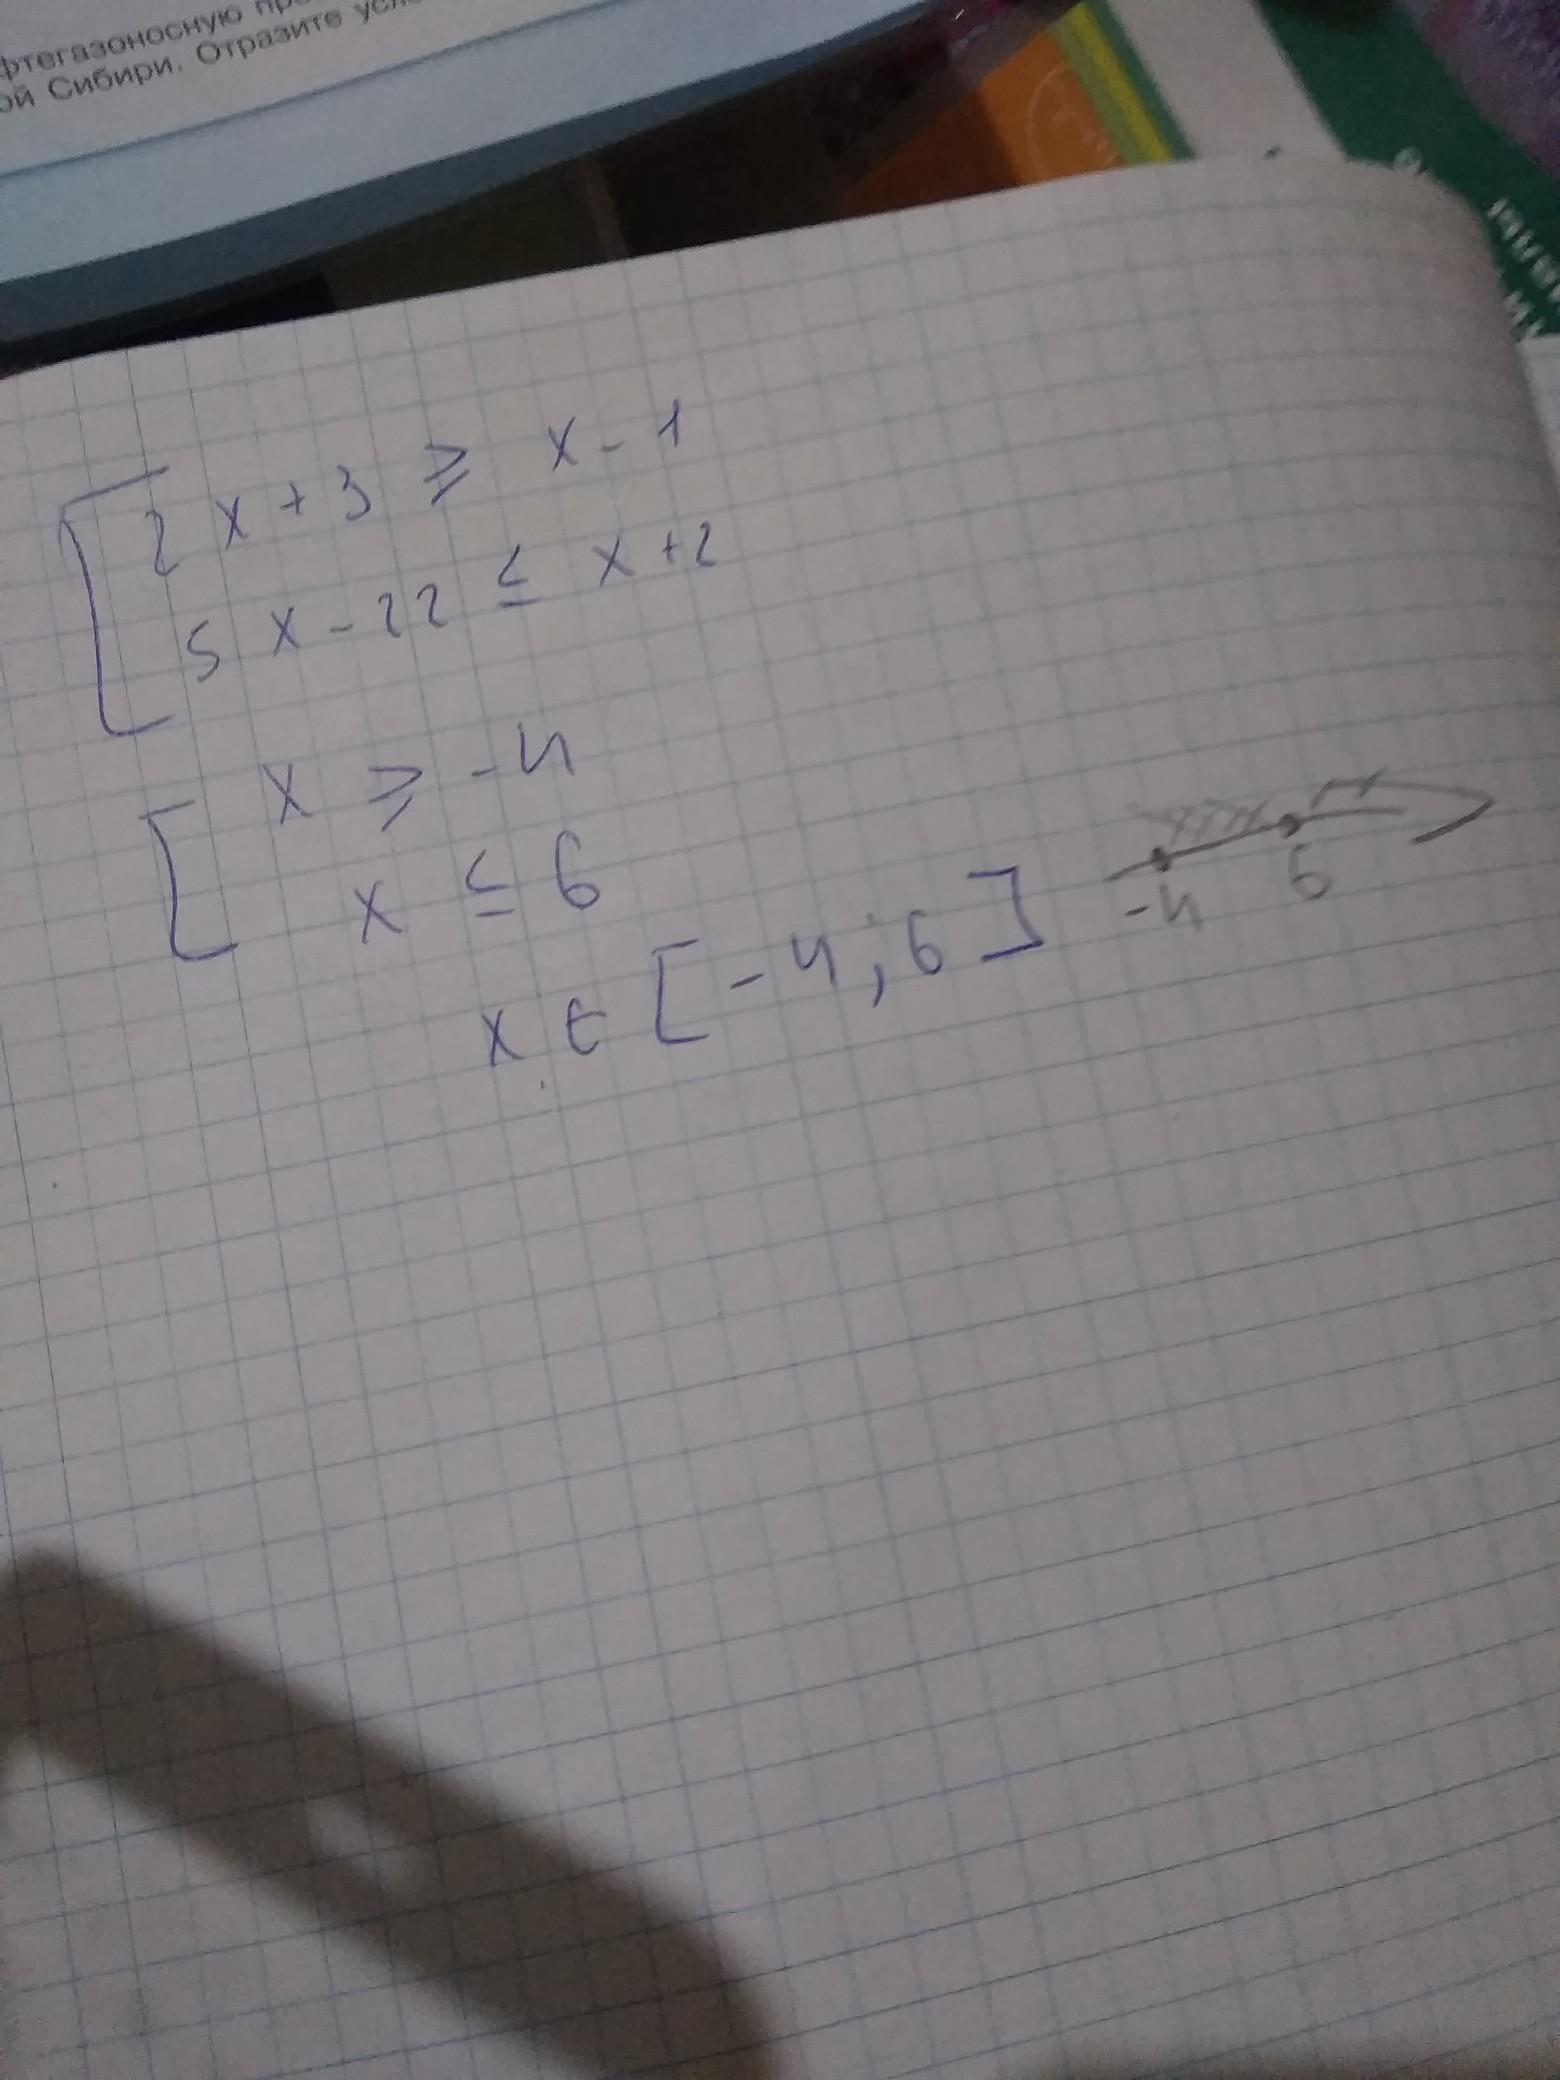 фтегазоносную
ой Сибири. Отразите
2x + 3 ≥ x - 1
5x - 22 ≤ x + 2
x ≥ -4
x ≤ 6
x ∈ [-4; 6]
-4 6